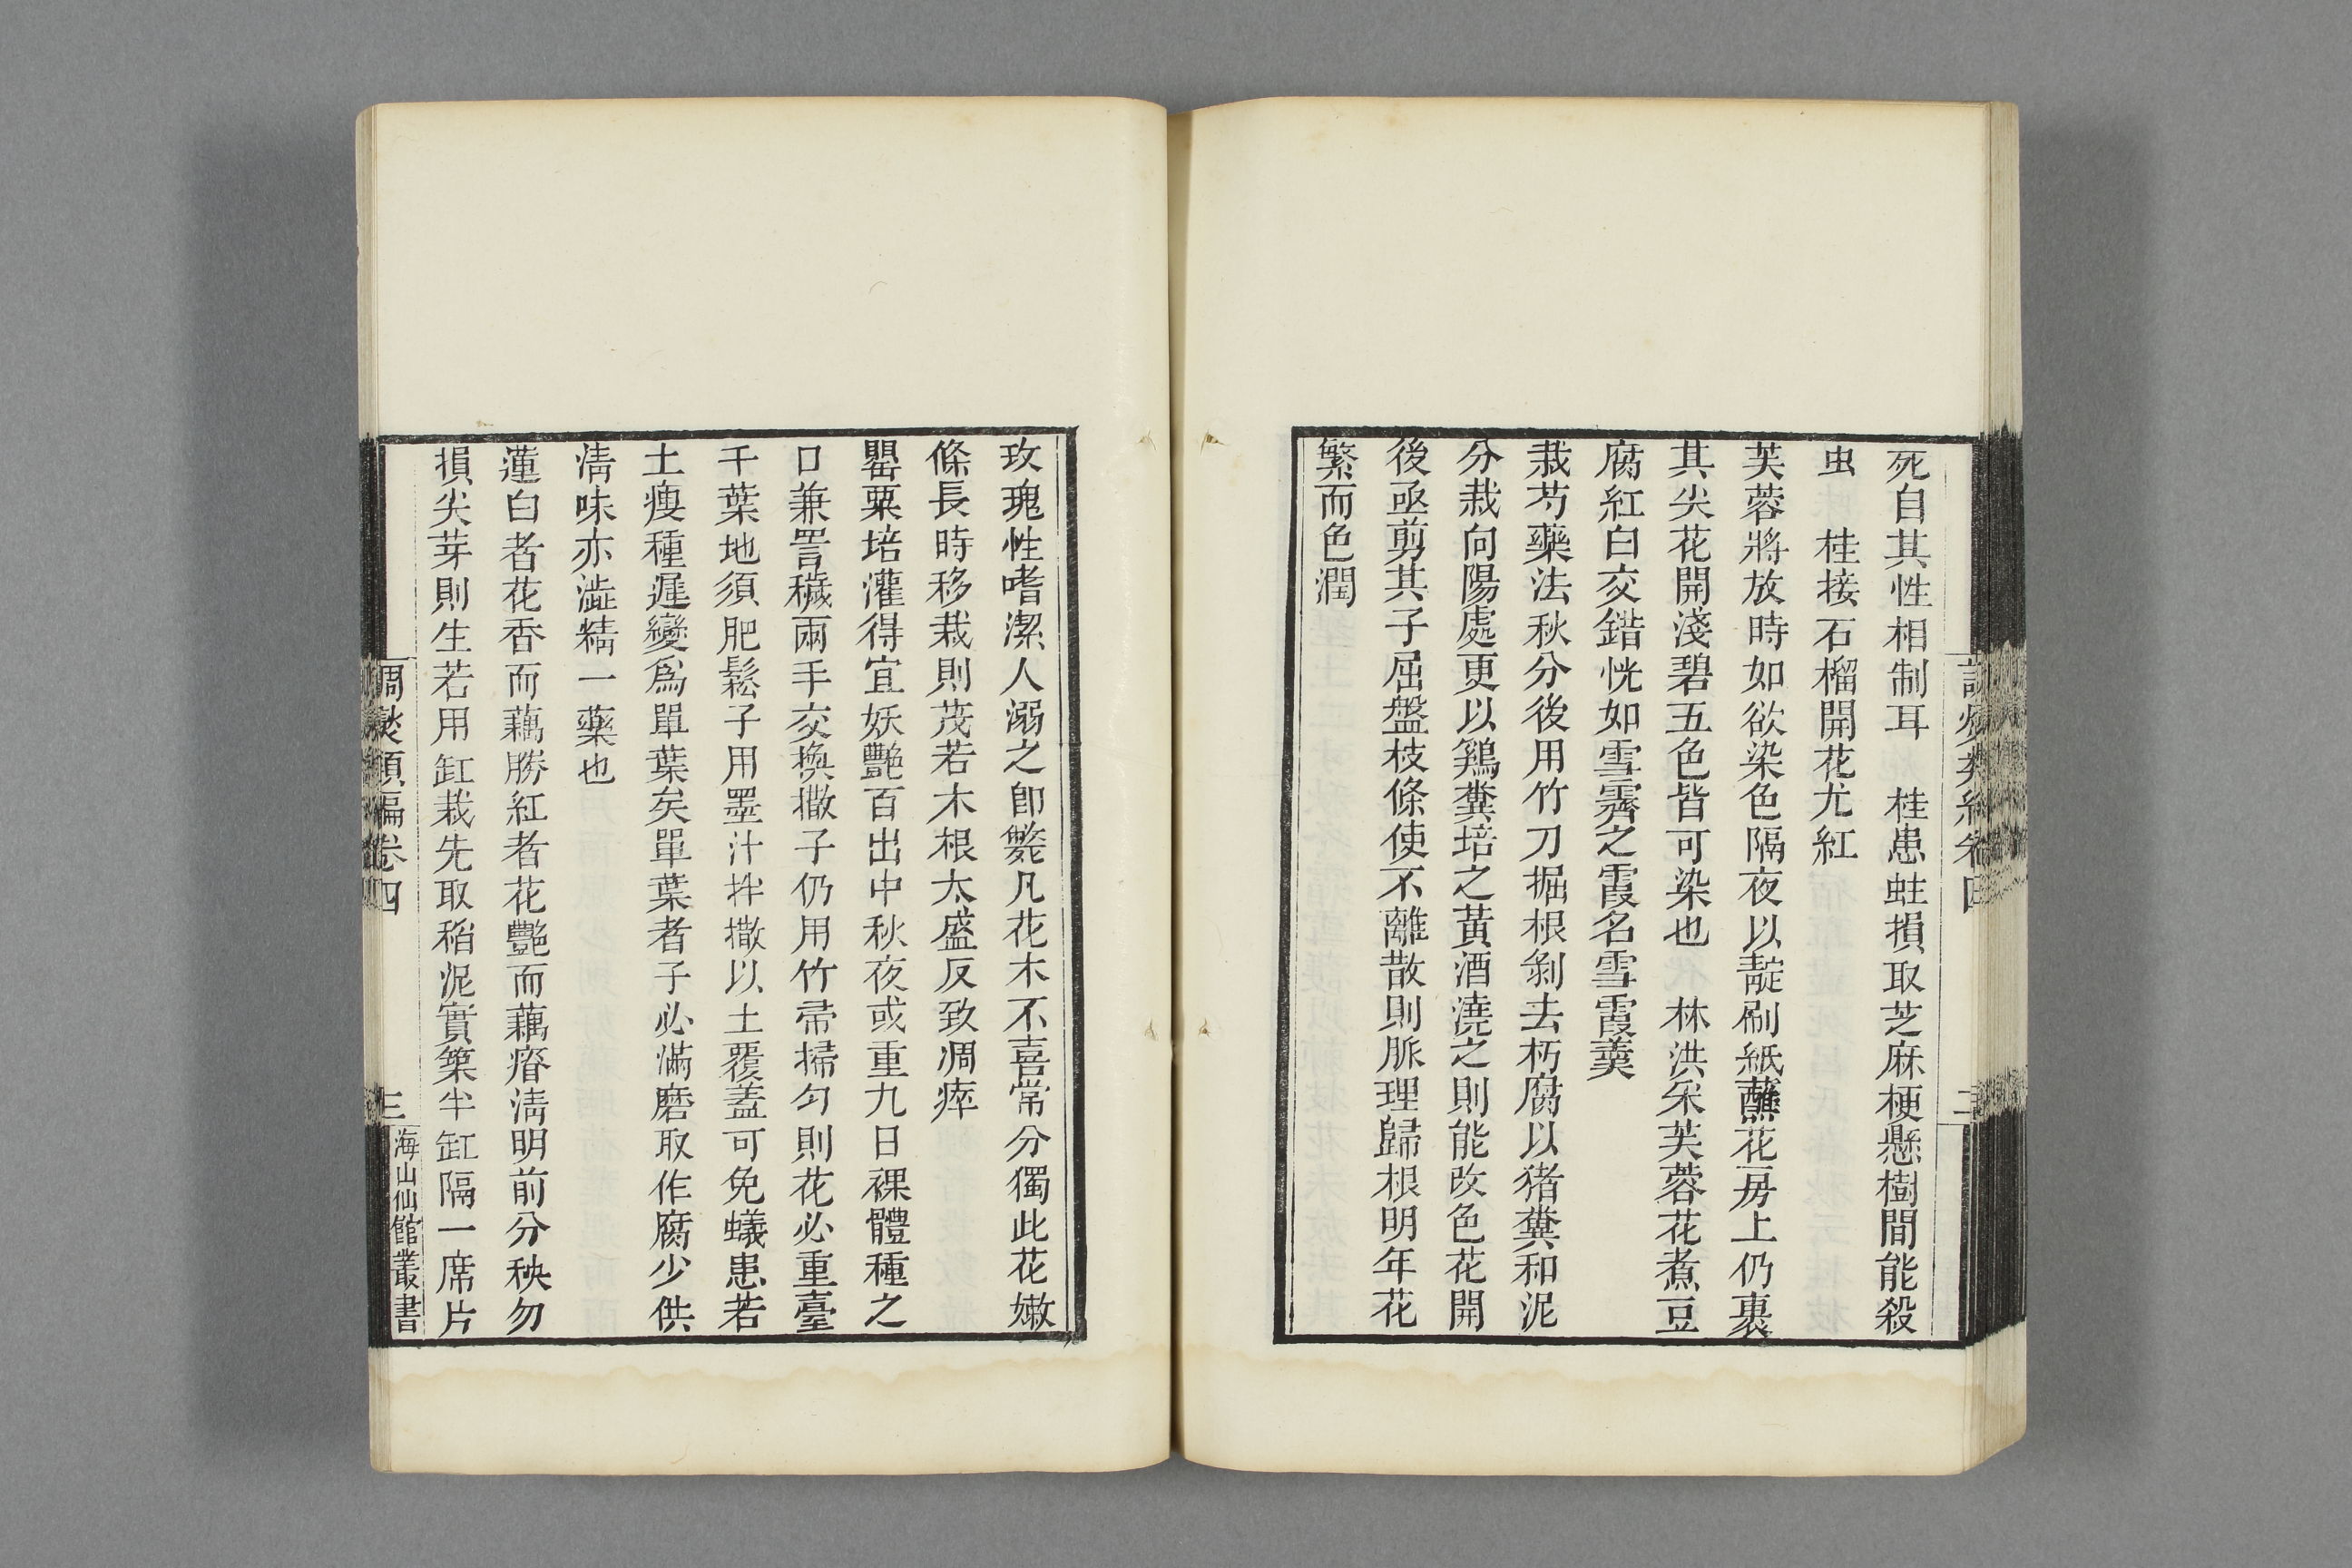 死自其性相制耳　桂患蛀損取芝麻梗懸樹間能殺
虫　桂接石榴開花尤紅
芙蓉將放時如欲染色隔夜以靛刷紙蘸花房上仍裹
其尖花開淺碧五色皆可染也　林洪采芙蓉花煮豆
腐紅白交錯恍如雪霽之霞名雪霞羹
栽芍藥法秋分後用竹刀掘根剝去朽腐以猪糞和泥
分栽向陽處更以鷄糞培之黃酒澆之則能改色花開
後亟剪其子屈盤枝條使不離散則脈理歸根明年花
繁而色潤
玫瑰性嗜潔人溺之即斃凡花木不喜常分獨此花嫩
條長時移栽則茂若木根太盛反致凋瘁
罌粟培灌得宜妖艷百出中秋夜或重九日裸體種之
口兼詈穢兩手交換撒子仍用竹帚掃勻則花必重臺
千葉地須肥鬆子用墨汁拌撒以土覆蓋可免蟻患若
土瘦種遲變爲單葉矣單葉者子必滿磨取作腐少供
清味亦澁精一藥也
蓮白者花香而藕勝紅者花艷而藕瘠清明前分秧勿
損尖芽則生若用缸栽先取稻泥實築半缸隔一席片
調燮類編卷四
三
海山仙館叢書